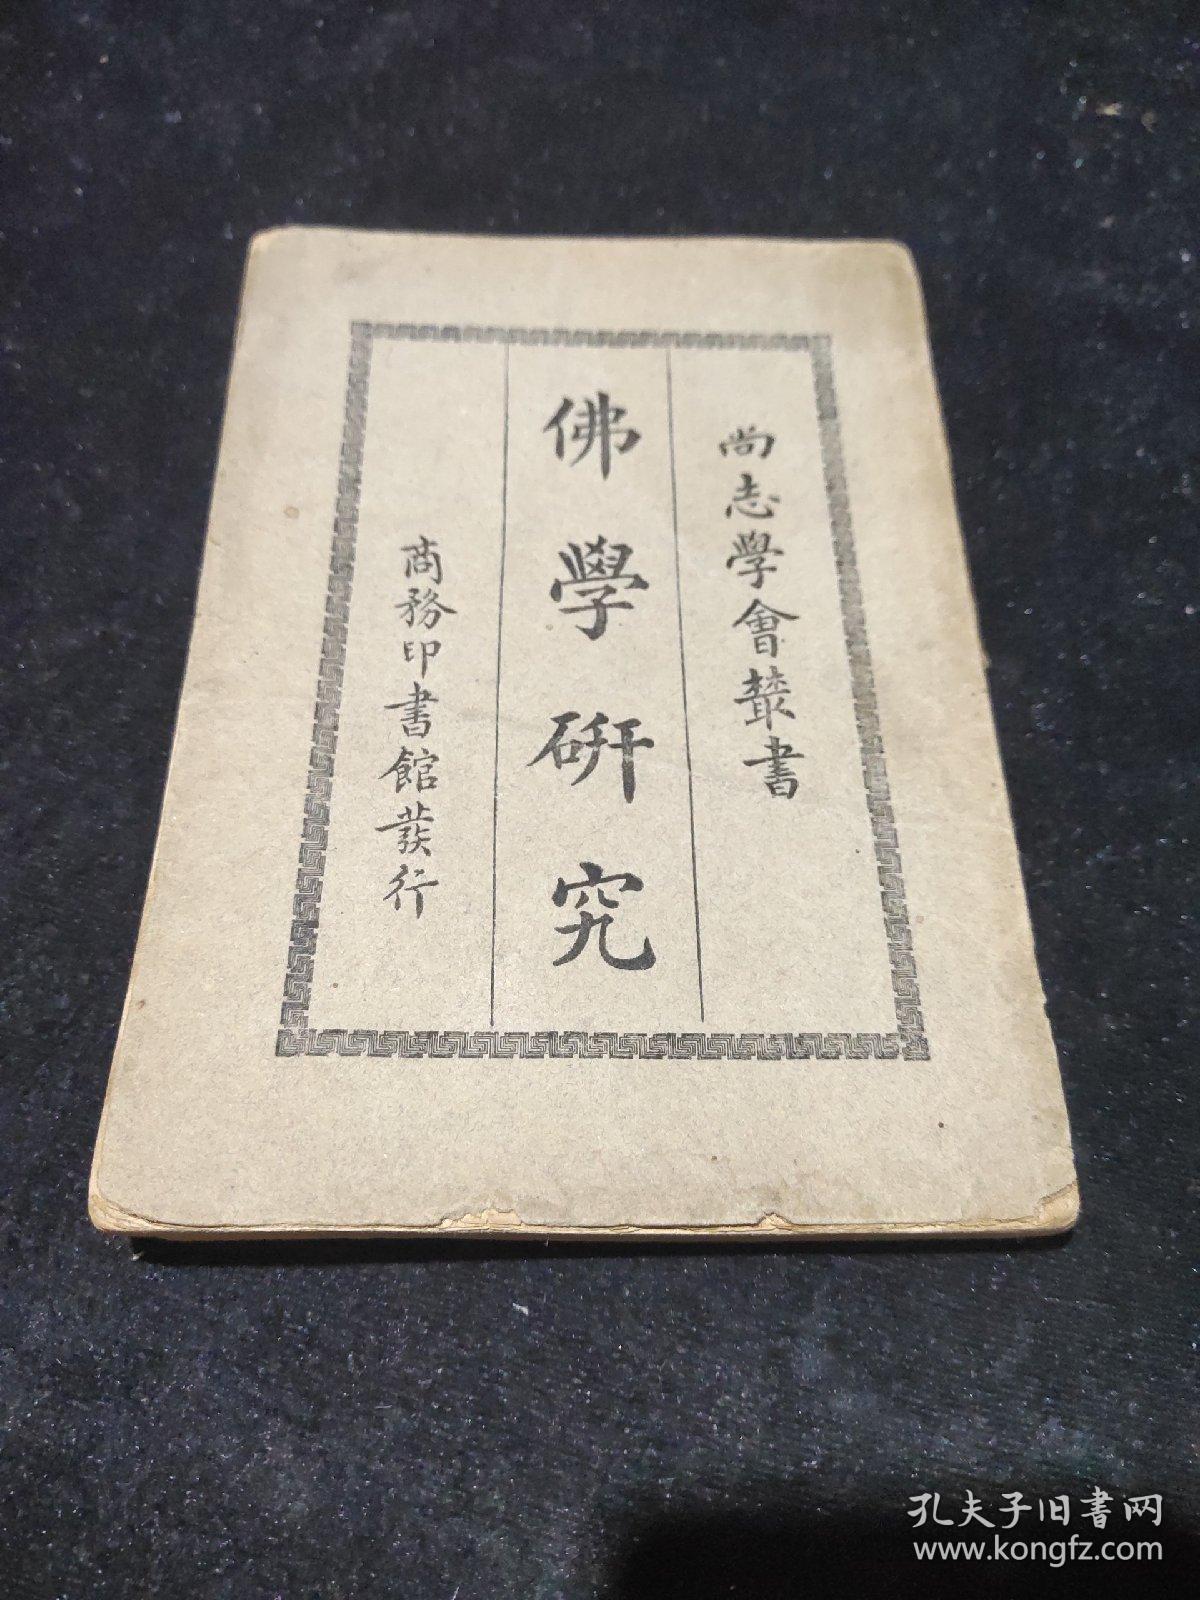 尚志學會叢書
佛學硏究
商務印書館發行
孔夫子旧书网
www.kongfz.com